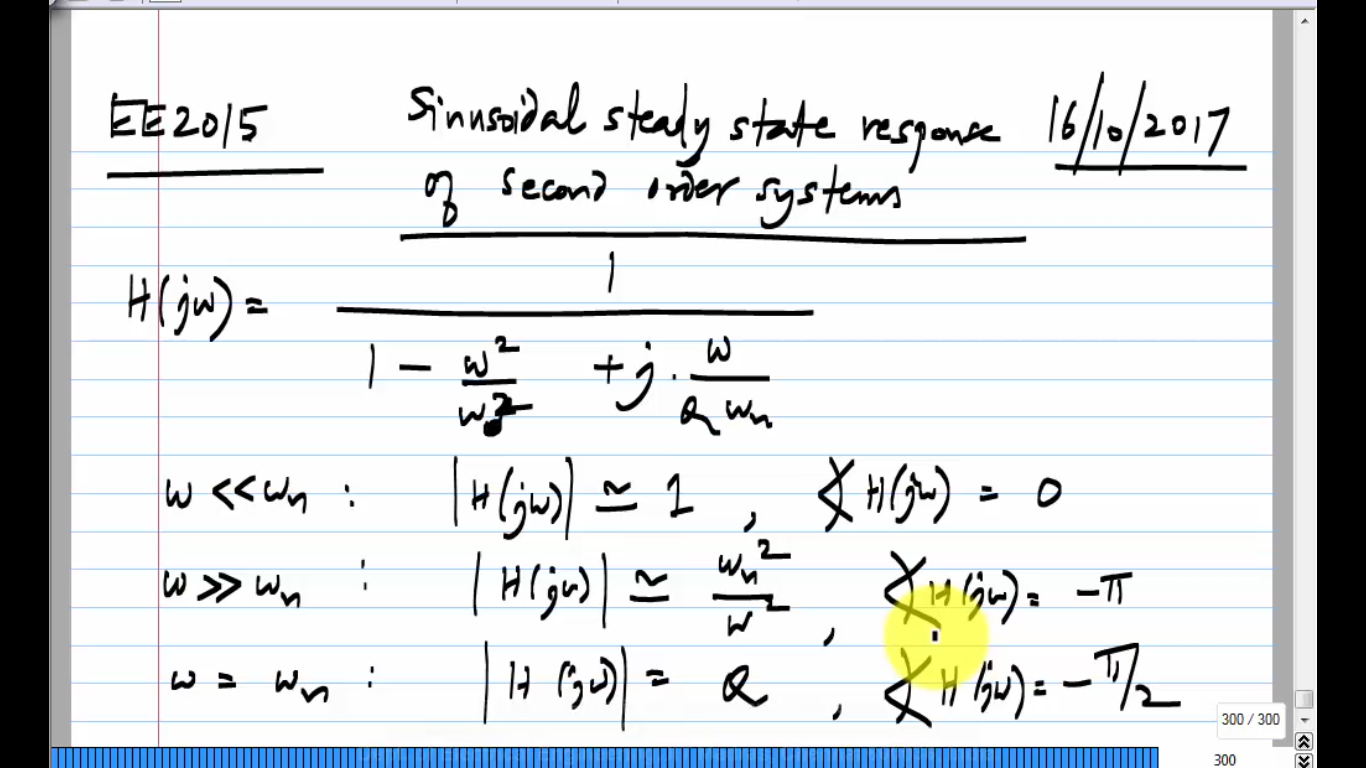 EE2015 Sinusoidal steady state response 16/10/2017
of second order systems
H(jω) = 1 / (1 - ω²/ωₙ² + j · ω/(Q ωₙ))
ω << ωₙ : |H(jω)| ≃ 1 , ∢H(jω) = 0
ω >> ωₙ : |H(jω)| ≃ ωₙ²/ω² , ∢H(jω) = -π
ω = ωₙ : |H(jω)| = Q , ∢H(jω) = -π/2
300 / 300
300